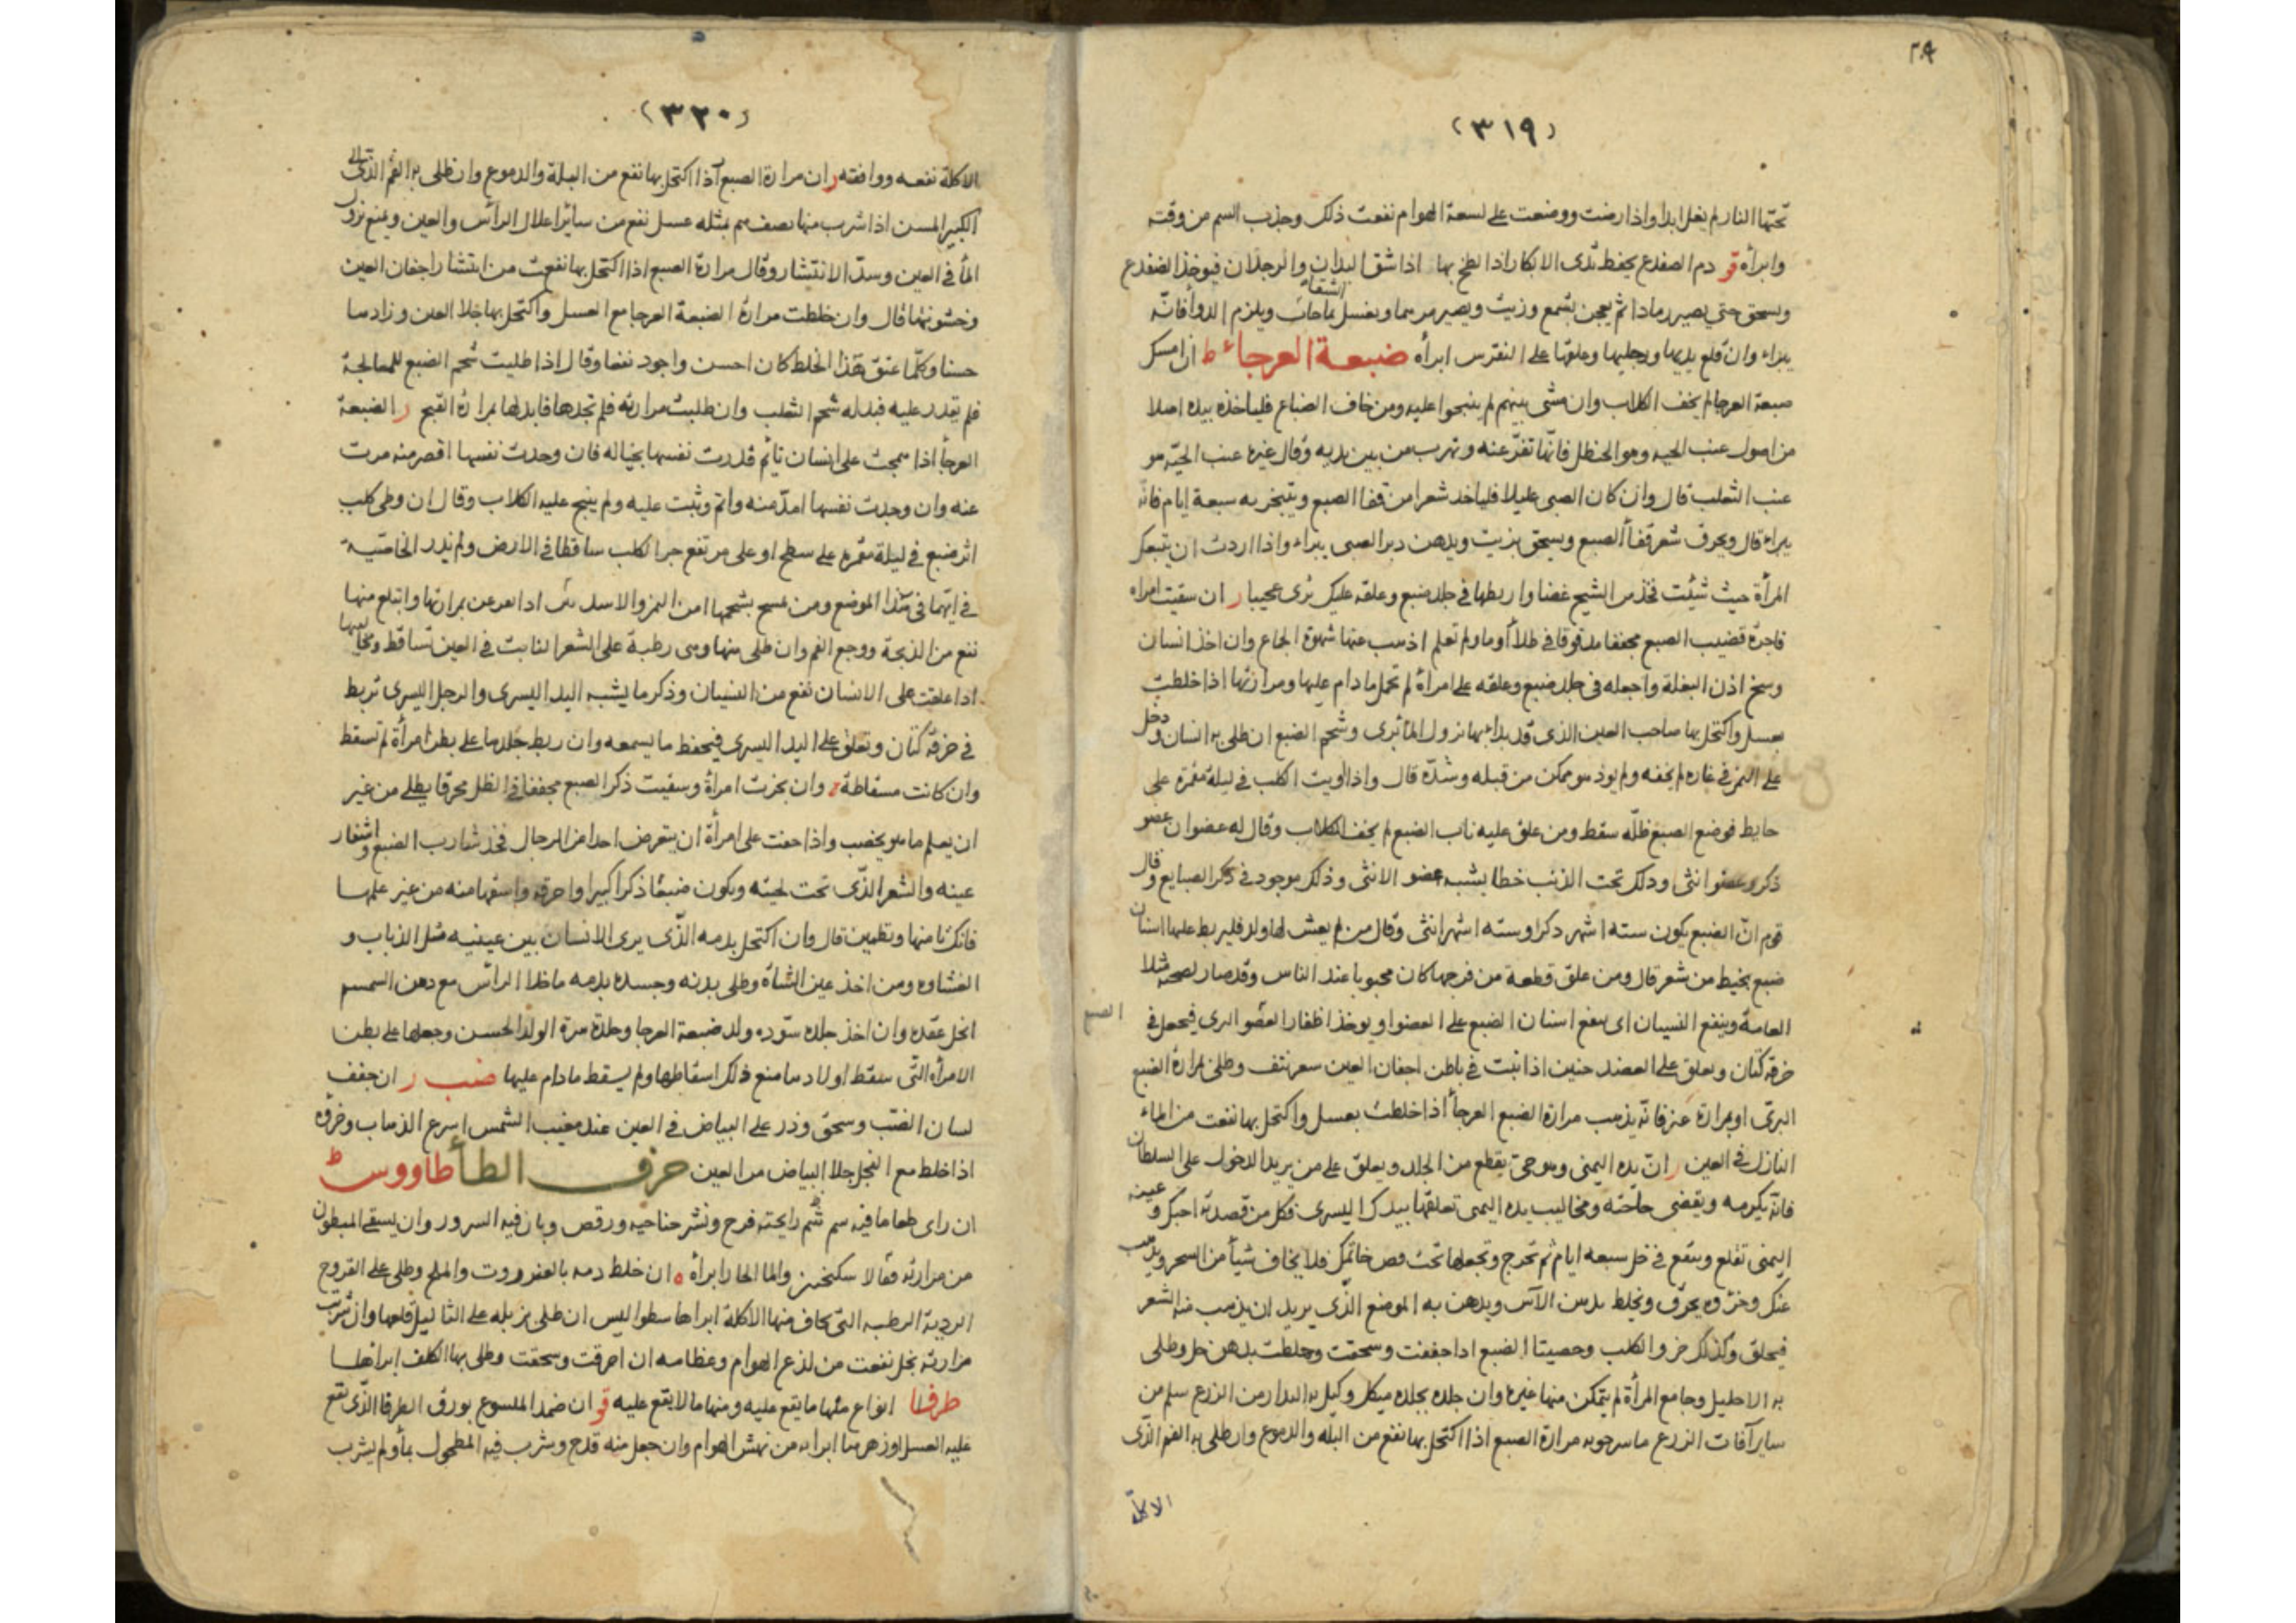 ٢٠٩
(٣١٩)
تحتها النار لم يغل ابدا واذا رضت ووضعت على لسعة الهوام نفعت ذلك وجذب السم من وقته
وابرأه قو دم الضفدع يحفظ ثدى الابكار اذا لطخ بها اذا شق اليدان والرجلان فيوخذ الضفدع
ويسحق حتى يصير رمادا ثم يعجن بشمع وزيت ويصير مرهما ويغسل الشقاق بماء حار ويلزم الدوأ فانّه
يبراء وان قلع يديها ورجليها وعلقها على النقرس ابرأه ضبعة العرجاء ط ان امسك
ضبعة العرجا لم يخف الكلاب وان مشى بينهم لم ينبحوا عليه ومن خاف الضباع فلياخذه بيده اصلا
من اصول عنب الحيه وهو الحنظل فانّها تفرّ عنه وتهرب من بين يديه وقال غيره عنب الحيّه هو
عنب الثعلب قال وان كان الصبى عليلا فلياخذ شعرا من قفا الضبع ويتبخر به سبعة ايام فانّه
يبراء قال ويحرق شعر قفأ الضبع ويسحق بزيت ويدهن دبر الصبى يبراء واذا اردت ان يتبعك
المرأة حيث شئت فخذ من الشيح غضا واربطها فى جلد ضبع وعلقه عليك ترى عجيبا ر ان سقيت امراه
فاجرة قضيب الضبع مجففا مدقوقا فى طلأ او ما ولم تعلم اذهب عنها شهوة الجماع وان اخذ انسان
وسخ اذن البغلة واجعله فى جلد ضبع وعلقه على امرأة لم تحمل ما دام عليها ومرارتها اذا خلطت
بعسل واكتحل بها صاحب العين الذى قد بداء بها نزول المأ تبرى وشحم الضبع ان طلى به انسان ودخل
على النمر فى غاره لم يخفه ولم يوذ هو ممكن من قبله وشدّه قال واذا اويت الكلب فى ليلة مقمرة على
حايط فوضع الضبع ظلّه سقط ومن علق عليه ناب الضبع لم يخف الكلاب وقال له عضوان عضو
ذكر وعضو انثى وذلك تحت الذنب خطا يشبه عضو الانثى وذلك موجود فى ذكر الضبايع وقال
قوم انّ الضبع يكون سته اشهر ذكرا وسته اشهر انثى وقال من لم يعش لها ولد فليربط عليها اسنان
ضبع بخيط من شعر قال ومن علق قطعة من فرجها كان محبوبا عند الناس وقد صار لصحته مثلا
العامة وينفع النسيان اى ينفع اسنان الضبع على العضو او يوخذ اظفار العضو البرى فيجعل فى
خرقة كتان ويعلق على العضد حنين اذا نبت فى باطن اجفان العين شعر نتف وطلى بمرارة الضبع
البرّى او بمرارة عنز فانّه يذهب مرارة الضبع العرجأ اذا خلطت بعسل واكتحل بها نفعت من الماء
النازل فى العين ر انّ يده اليمنى وهو حىّ يقطع من الجلد ويعلق على من يريد الدخول على السلطان
فانّه يكرمه ويقضى حاجته ومخاليب يده اليمنى تعلقها بيدك اليسرى فكل من قصدته احبك وعينه
اليمنى تقلع وينقع فى خل سبعه ايام ثم تخرج وتجعلها تحت فص خاتمك فلا يخاف شيأ من السحر ويذهب
عنك وخروه يحرق ويخلط بدهن الآس ويدهن به الموضع الذّى يريد ان يذهب منه الشعر
فيحلق وكذلك خر والكلب وخصيتا الضبع اذا جففت وسحقت وخلطت بدهن خل وطلى
به الاحليل وجامع المرأة لم يتمكن منها غيره وان جلده بجلده ميكل وكيل به البدار من الزرع سلم من
ساير آفات الزرع ماسرجويه مرارة الضبع اذا اكتحل بها نفع من البله والدموع وان طلى به الفم الذّى
الاكلة
الضبع
(٣٢٠)
الاكلة نفعه ووافقته ر ان مرارة الضبع اذا اكتحل بها نفع من البلة والدموع وان طلى به الفم الذّى
الكبير المسن اذا شرب منها نصف درهم بمثله عسل نفع من سائر اعلال الرأس والعين ويمنع نزول
المأ فى العين وسدّ الانتشار وقال مرارة الضبع اذا اكتحل بها نفعت من انتشار اجفان العين
وخشونتها قال وان خلطت مرارة الضبعة العرجا مع العسل واكتحل بها جلا العين وزادها
حسنا وكلّما عتق هذا الخلط كان احسن واجود نفعا وقال اذا طلبت شحم الضبع للمعالجة
فلم يقدر عليه فبدله شحم الثعلب وان طلبت مرارته فلم تجدها فابدلها بمرارة القبج ر الضبعة
العرجأ اذا هجمت على انسان نائم قدرت نفسها بخياله فان وجدت نفسها اقصر منه مرت
عنه وان وجدت نفسها امدّ منه واتم وثبت عليه ولم ينبح عليه الكلاب وقال ان وطى كلب
اثر ضبع فى ليلة مقمره على سطح او على مرتفع جرا الكلب ساقطا فى الارض ولم ندر الخاصّية
فى ايّهما فى هذا الموضع ومن مسح بشحمها امن النمر والاسد
نفع من الذبحة ووجع الفم وان طلى منها وهى رطبة على الشعر النابت فى العين تساقط
اذا علقت على الانسان نفع من النسيان وذكر ما يشبه اليد اليسرى والرجل اليسرى تربط
فى خرقة كتان وتعلق على اليد اليسرى فيحفظ ما يسمعه وان ربط جلدها على بطن امرأة لم تسقط
وان كانت مسقاطة ر وان بخرت امرأة وسقيت ذكر الضبع مجففا فى الظل محرقا يطلى من غير
ان يعلم ما هو يخصب واذا خفت على امرأة ان يتعرض احدا من الرجال فخذ شارب الضبع واشفار
عينه والشعر الذّى تحت لحيته ويكون ضبعا ذكرا كبيرا واحرقه واسقها منه من غير علمها
فانك تا منها وتطمين قال وان اكتحل بدمه الذّى يرى الانسان بين عينيه مثل الذباب و
الغشاوه ومن اخذ عين الشاة وطلى بدنه وجسده بدمه ما خلا الرأس مع دهن السمسم
انحل عقده وان اخذ جلده سوره ولد ضبعة العرجا وجلدة سرة الولد الحسن وجعلها على بطن
الامرأه التّى سقط اولادها منع ذلك اسقاطها ولم يسقط مادام عليها ضب ر ان جفف
لسان الضبّ وسحق وذر على البياض فى العين عند مغيب الشمس اسرع الذهاب وخرؤه
اذا خلط مع النجل جلا البياض من العين حرف الطأ طاووس ط
ان راى طعاما فيه سم شم رايحته فرح ونشر جناحيه ورقص وبان فيه السرور وان يسقى المبطون
من مرارته فقالا سكنجبين والما الحار ابرأه ه ان خلط دمه بالعنزروت والملح وطلى على القروح
الردية الرطبه التى يخاف منها الاكلة ابراها سطواليس ان طلى بزبله على الثاليل قلعها وان شربت
مرارته بخل نفعت من لذع الهوام وعظامه ان احرقت وسحقت وطلى بها الكلف ابراها
طرفا انواع منها ما يقع عليه ومنها ما لا يقع عليه قو ان ضمد الملسوع بورق الطرفا الذّى تقع
عليه العسل اوزهرها ابراه من نهش الهوام وان جعل منه قدح وشرب فيه المطحول بمأ ولم يشرب